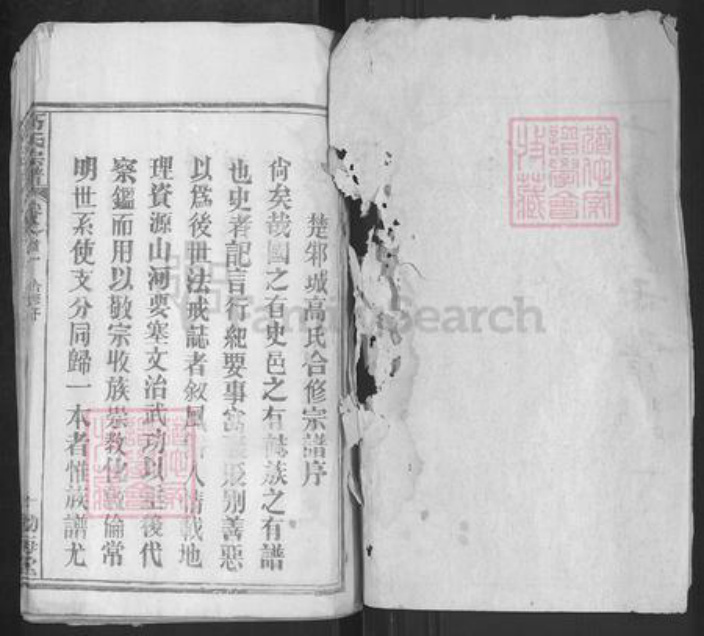 楚邾城高氏合修宗譜序
尚矣哉國之有史邑之有誌族之有譜
也史者記言行紀要事貶別善惡
以爲後世法戒誌者叙風人情載地
理資源山河要塞文治武功以至後代
察鑑而用以敬宗收族崇教化敦倫常
明世系使支分同歸一本者惟族譜尤
FamilySearch
譜學會
特藏